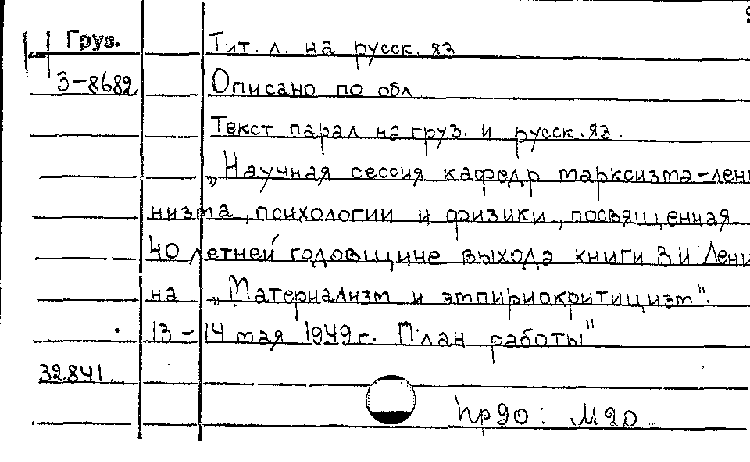 Груз. Тит. л. на русск. яз
3-8682 Описано по обл.
Текст парал на груз. и русск. яз.
„Научная сессия кафедр марксизма-лени
низма, психологии и физики, посвященная
40 летней годовщине выхода книги В И Лени
на „Материализм и эмпириокритицизм".
13-14 мая 1949 г. План работы"
32.841